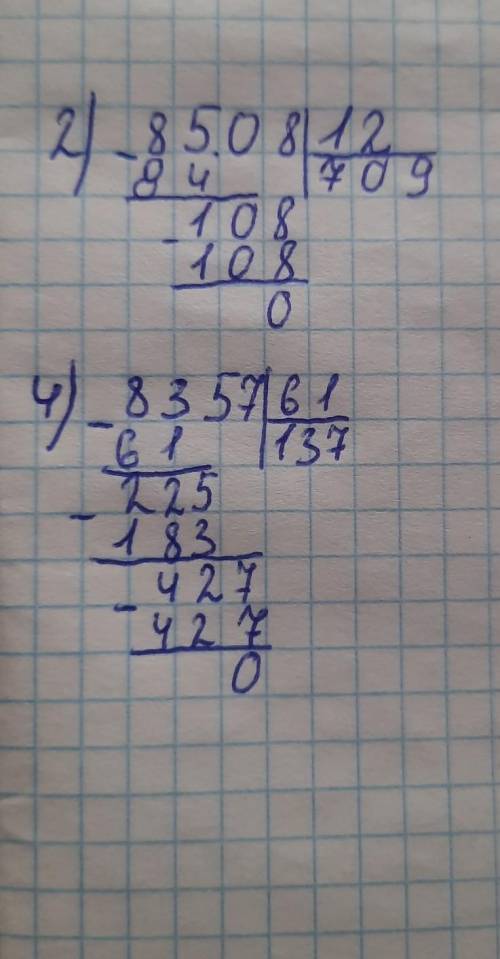 2) - 8508 | 12
84 709
- 108
108
0
4) - 8357 | 61
61 137
- 225
183
- 427
427
0